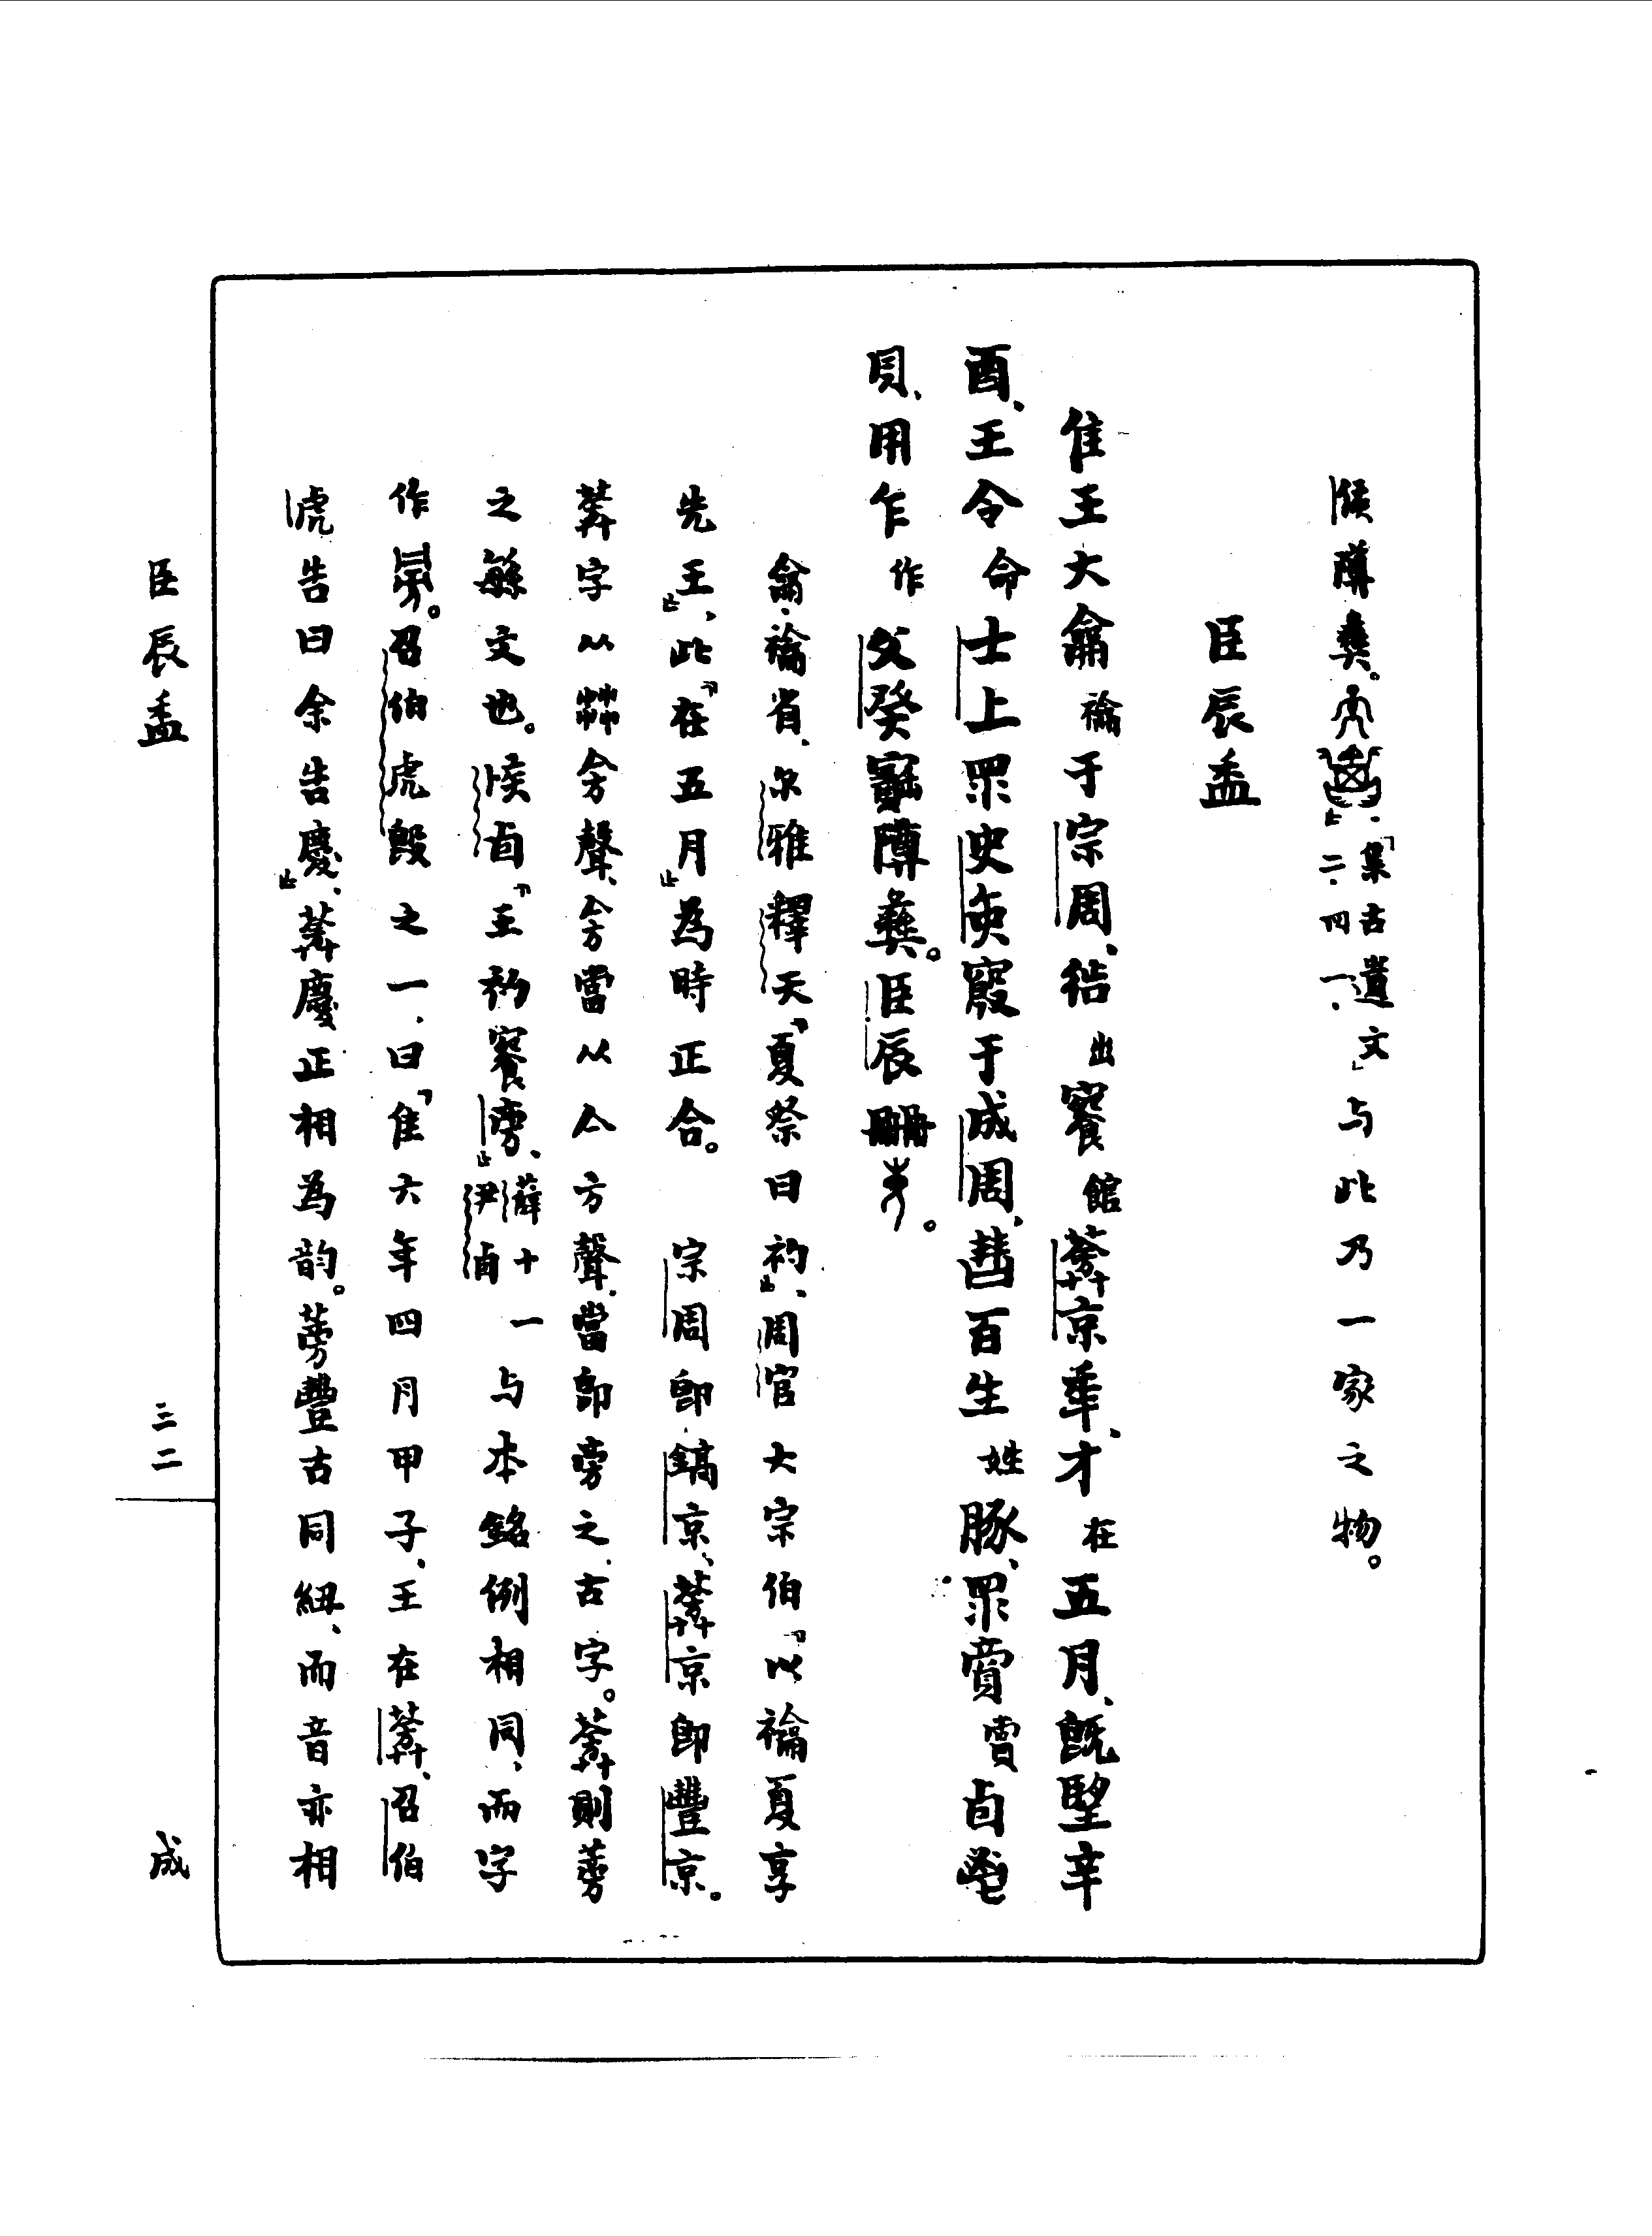 侯𨻰彝。」「集古遺文」二.四一.与此乃一家之物。
臣辰盉
隹王大龠禴于宗周,𢓊出䬦館𦮙京年,才在五月,既朢辛
酉,王令命士上眔史寅䆲于成周,𦾔百生姓豚,眔賞賣卣鬯
貝,用乍作父癸寶𨻰彝。臣辰𠕋𠕋。
龠,禴省,尔雅釋天「夏祭曰礿」,周官大宗伯「以禴夏享
先王」,此「在五月」為時正合。 宗周即鎬京,𦮙京即豐京。
𦮙字以茻㑂聲,㑂當以亼方聲,當即旁之古字。𦮙則蒡
之緐文也。矦卣「王礿䬦旁」,薛十一尹卣与本銘例相同,而字
作。召伯虎𣪘之一,曰「隹六年四月甲子,王在𦮙,召伯
虎告曰余告慶」,𦮙慶正相為韵。蒡豐古同紐,而音亦相
臣辰盉
三二
成